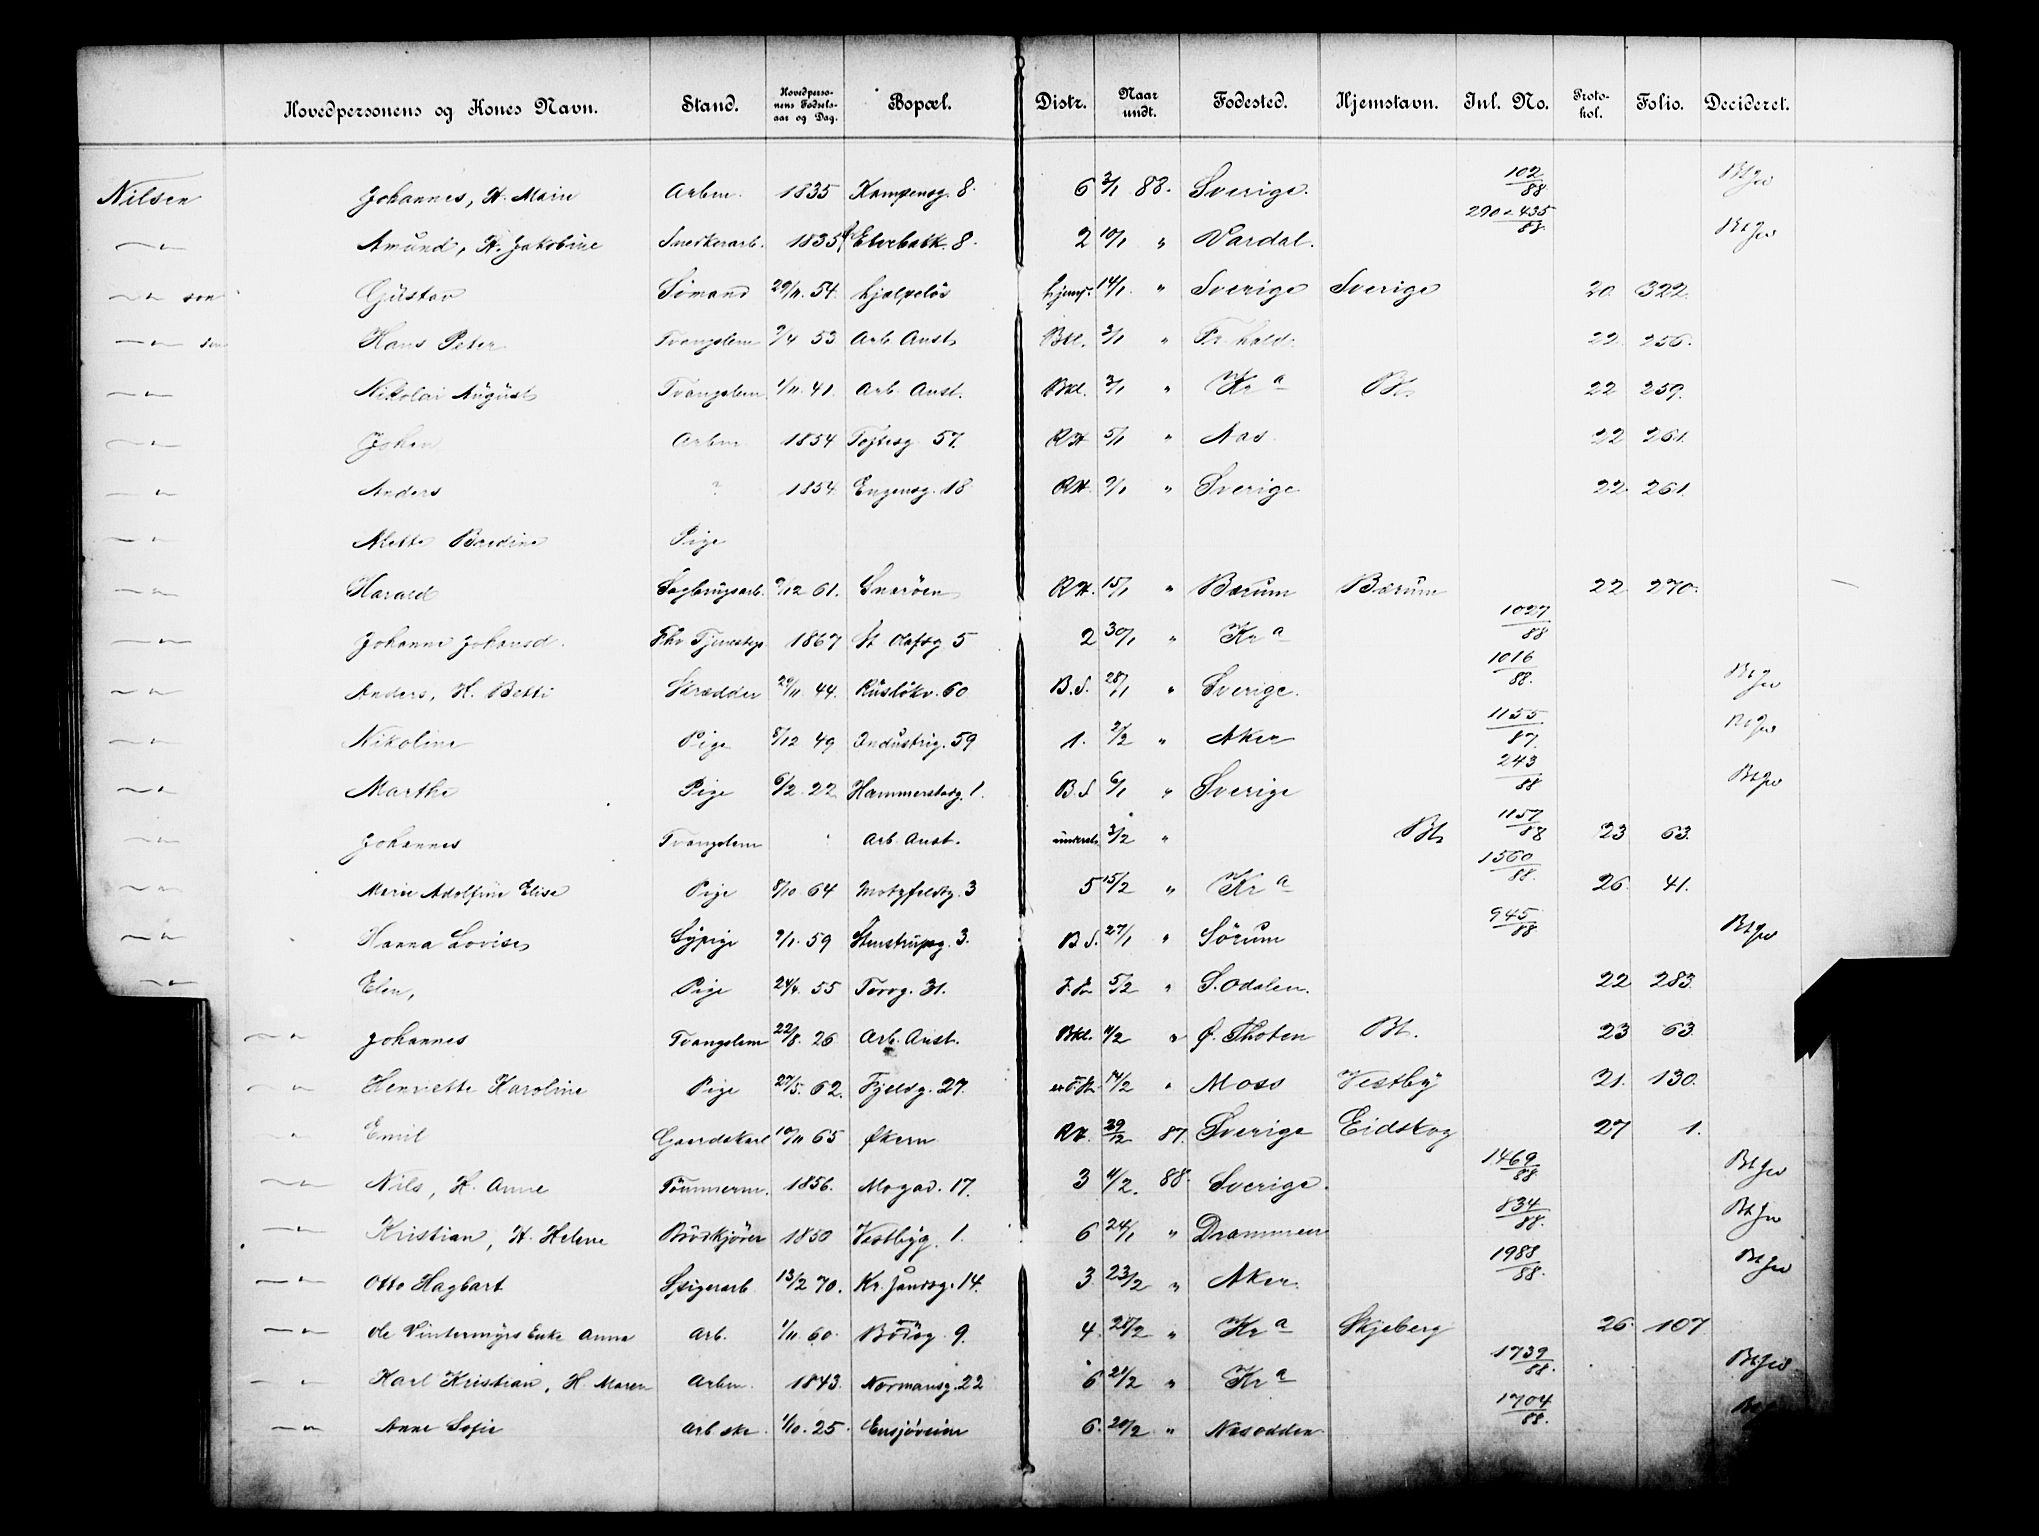 Hovedpersonens og Kones Navn. Stand. Hovedpersonens Fødselsaar og Dag. Bopæl. Distr. Naar undt. Fødested. Hjemstavn. Inl. No. Protokol. Folio. Decideret.
Nilsen Johannes, H. Marie Arbm. 1835 Kampensg. 8. 6 3/1 88. Sverige. 102/88 BtJw
—"— Amund, H. Jakobine Snedkerarb. 1835 Elvebakk. 8. 2 10/1 " Vardal. 290 - 435/88 BtJw
—"— son Gustav Sømand 29/11. 54. hjælpeløs hjemf. 14/1. " Sverige Sverige 20. 322.
—"— sen Hans Peter Tvangslem 9/4 53 Arb. Anst. Bkl. 3/1 " Fr.hald. 22. 256.
—"— Nikolai August Tvangslem 1/11. 41. Arb. Anst. Bkl. 3/1 " Kra Bt. 22 259.
—"— Johan Arbm 1854 Tøjtesg. 57. RH 5/1 " Nas. 22 261.
—"— Anders ? 1854. Engensg. 18. RH. 9/1 " Sverige 22. 261.
—"— Alette Bredine Pige
—"— Harald Sagbrugsarb. 9/12 61. Snarøen RH. 15/1 " Bærum Bærum 22. 270.
—"— Johanne Johansd. Fhv Tjenestep 1867 St Olafsg. 5 2 30/1 " Kra 1027/88
—"— Anders, H. Betti Skrædder 29/11 44. Rusløkv. 60 B.S. 28/1 " Sverige. 1016/88. BtJw
—"— Nikoline Pige 8/12 49 Industrig. 59 1. 2/2 " Aker 1155/87. BtJw
—"— Marthe Pige 6/2. 22 Hammersborg. 1. B.S 6/1 " Sverige 243/88 BtJw
—"— Johannes Tvangslem Arb. Anst. 3/2 " Bt. 1157/88 23 63.
—"— Marie Adolfine Elise Pige 8/10 64 Motzfeldtg. 3 5 15/2 " Kra 1560/88. 26. 41.
—"— Hanna Lovise Sypige 9/1. 59 Stenstrupsg. 3. B.S. 27/1 " Sørum 945/88 BtJw
—"— Elen, Pige 24/4. 55 Torvg. 31. F.Fr 5/2 " S. Odalen. 22 283.
—"— Johannes Tvangslem 22/8. 26 Arb. Anst. Bkl. 11/2 " Ø. Thoten Bt. 23 63
—"— Henriette Karoline Pige 27/5. 62. Fjeldg. 27. 14/2 " Moss Vestby 21. 130.
" Emil Gaardskarl 10/11 65 Økern RH. 29/12 87. Sverige Eidskog 27 1.
—"— Nils, H. Anne Tømmerm. 1856. Mogad. 17. 3 11/2. 88. Sverige. 1469/88 BtJw
—"— Kristian, H. Helene Brødkjører 1850 Vestbyg. 1. 6 24/1 " Drammen 834/88. BtJw
—"— Otto Hagbart Spigerarb. 13/2 70. Kr. Jandsg. 14. 3 23/2 " Aker. 1988/88. BtJw
—"— Ole Vintermyrs Enke Anna Arb. 1/11. 60. Bodøg. 9. 4. 28/2 " Kra Skjeberg 26. 107
—"— Karl Kristian, H. Maren Arbm. 1843. Normansg. 22 6 21/2 " Kra 1739/88. BtJw
—"— Anne Sofie Arb. ske. 1/10. 25. Ensjøveien 6. 20/2 " Næsodden 1704/88.